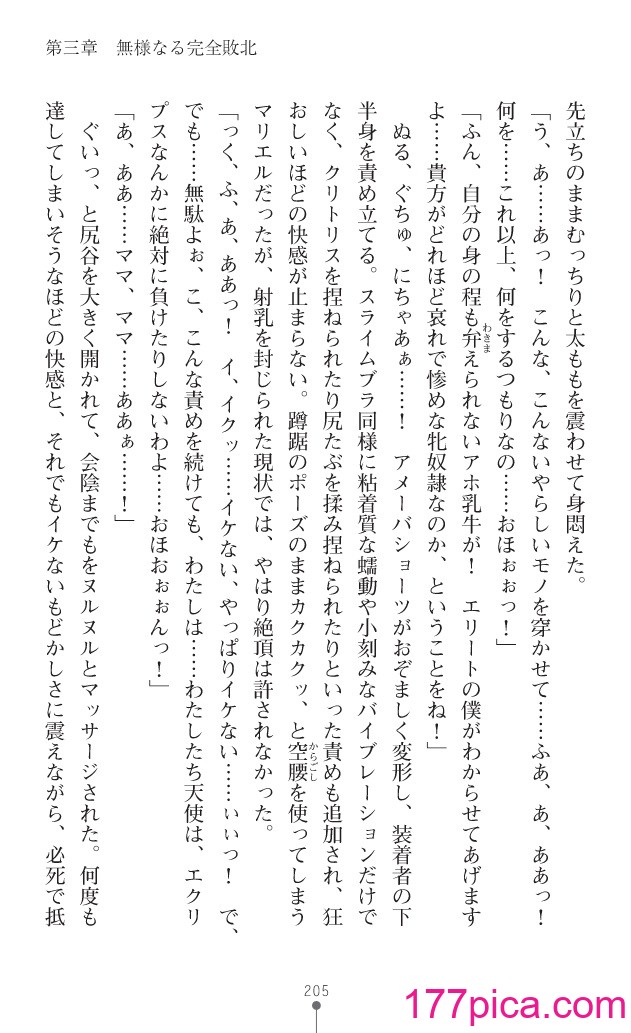 第三章　無様なる完全敗北
先立ちのままむっちりと太ももを震わせて身悶えた。
「う、あ……あっ！　こんな、こんないやらしいモノを穿かせて……ふあ、あ、ああっ！
何を……これ以上、何をするつもりなの……おほぉぉっ！」
「ふん、自分の身の程も弁えられないアホ乳牛が！　エリートの僕がわからせてあげます
わきま
よ……貴方がどれほど哀れで惨めな牝奴隷なのか、ということをね！」
　ぬる、ぐちゅ、にちゃあぁ……！　アメーバショーツがおぞましく変形し、装着者の下
半身を責め立てる。スライムブラ同様に粘着質な蠕動や小刻みなバイブレーションだけで
なく、クリトリスを捏ねられたり尻たぶを揉み捏ねられたりといった責めも追加され、狂
おしいほどの快感が止まらない。蹲踞のポーズのままカクカクッ、と空腰を使ってしまう
からごし
マリエルだったが、射乳を封じられた現状では、やはり絶頂は許されなかった。
「っく、ふ、あ、ああっ！　イ、イクッ……イケない、やっぱりイケない……ぃぃっ！　で、
でも……無駄よぉ、こ、こんな責めを続けても、わたしは……わたしたち天使は、エクリ
プスなんかに絶対に負けたりしないわよ……おほおぉぉんっ！」
「あ、ああ……ママ、ママ……ああぁ……！」
　ぐいっ、と尻谷を大きく開かれて、会陰までもをヌルヌルとマッサージされた。何度も
達してしまいそうなほどの快感と、それでもイケないもどかしさに震えながら、必死で抵
205
177pica.com